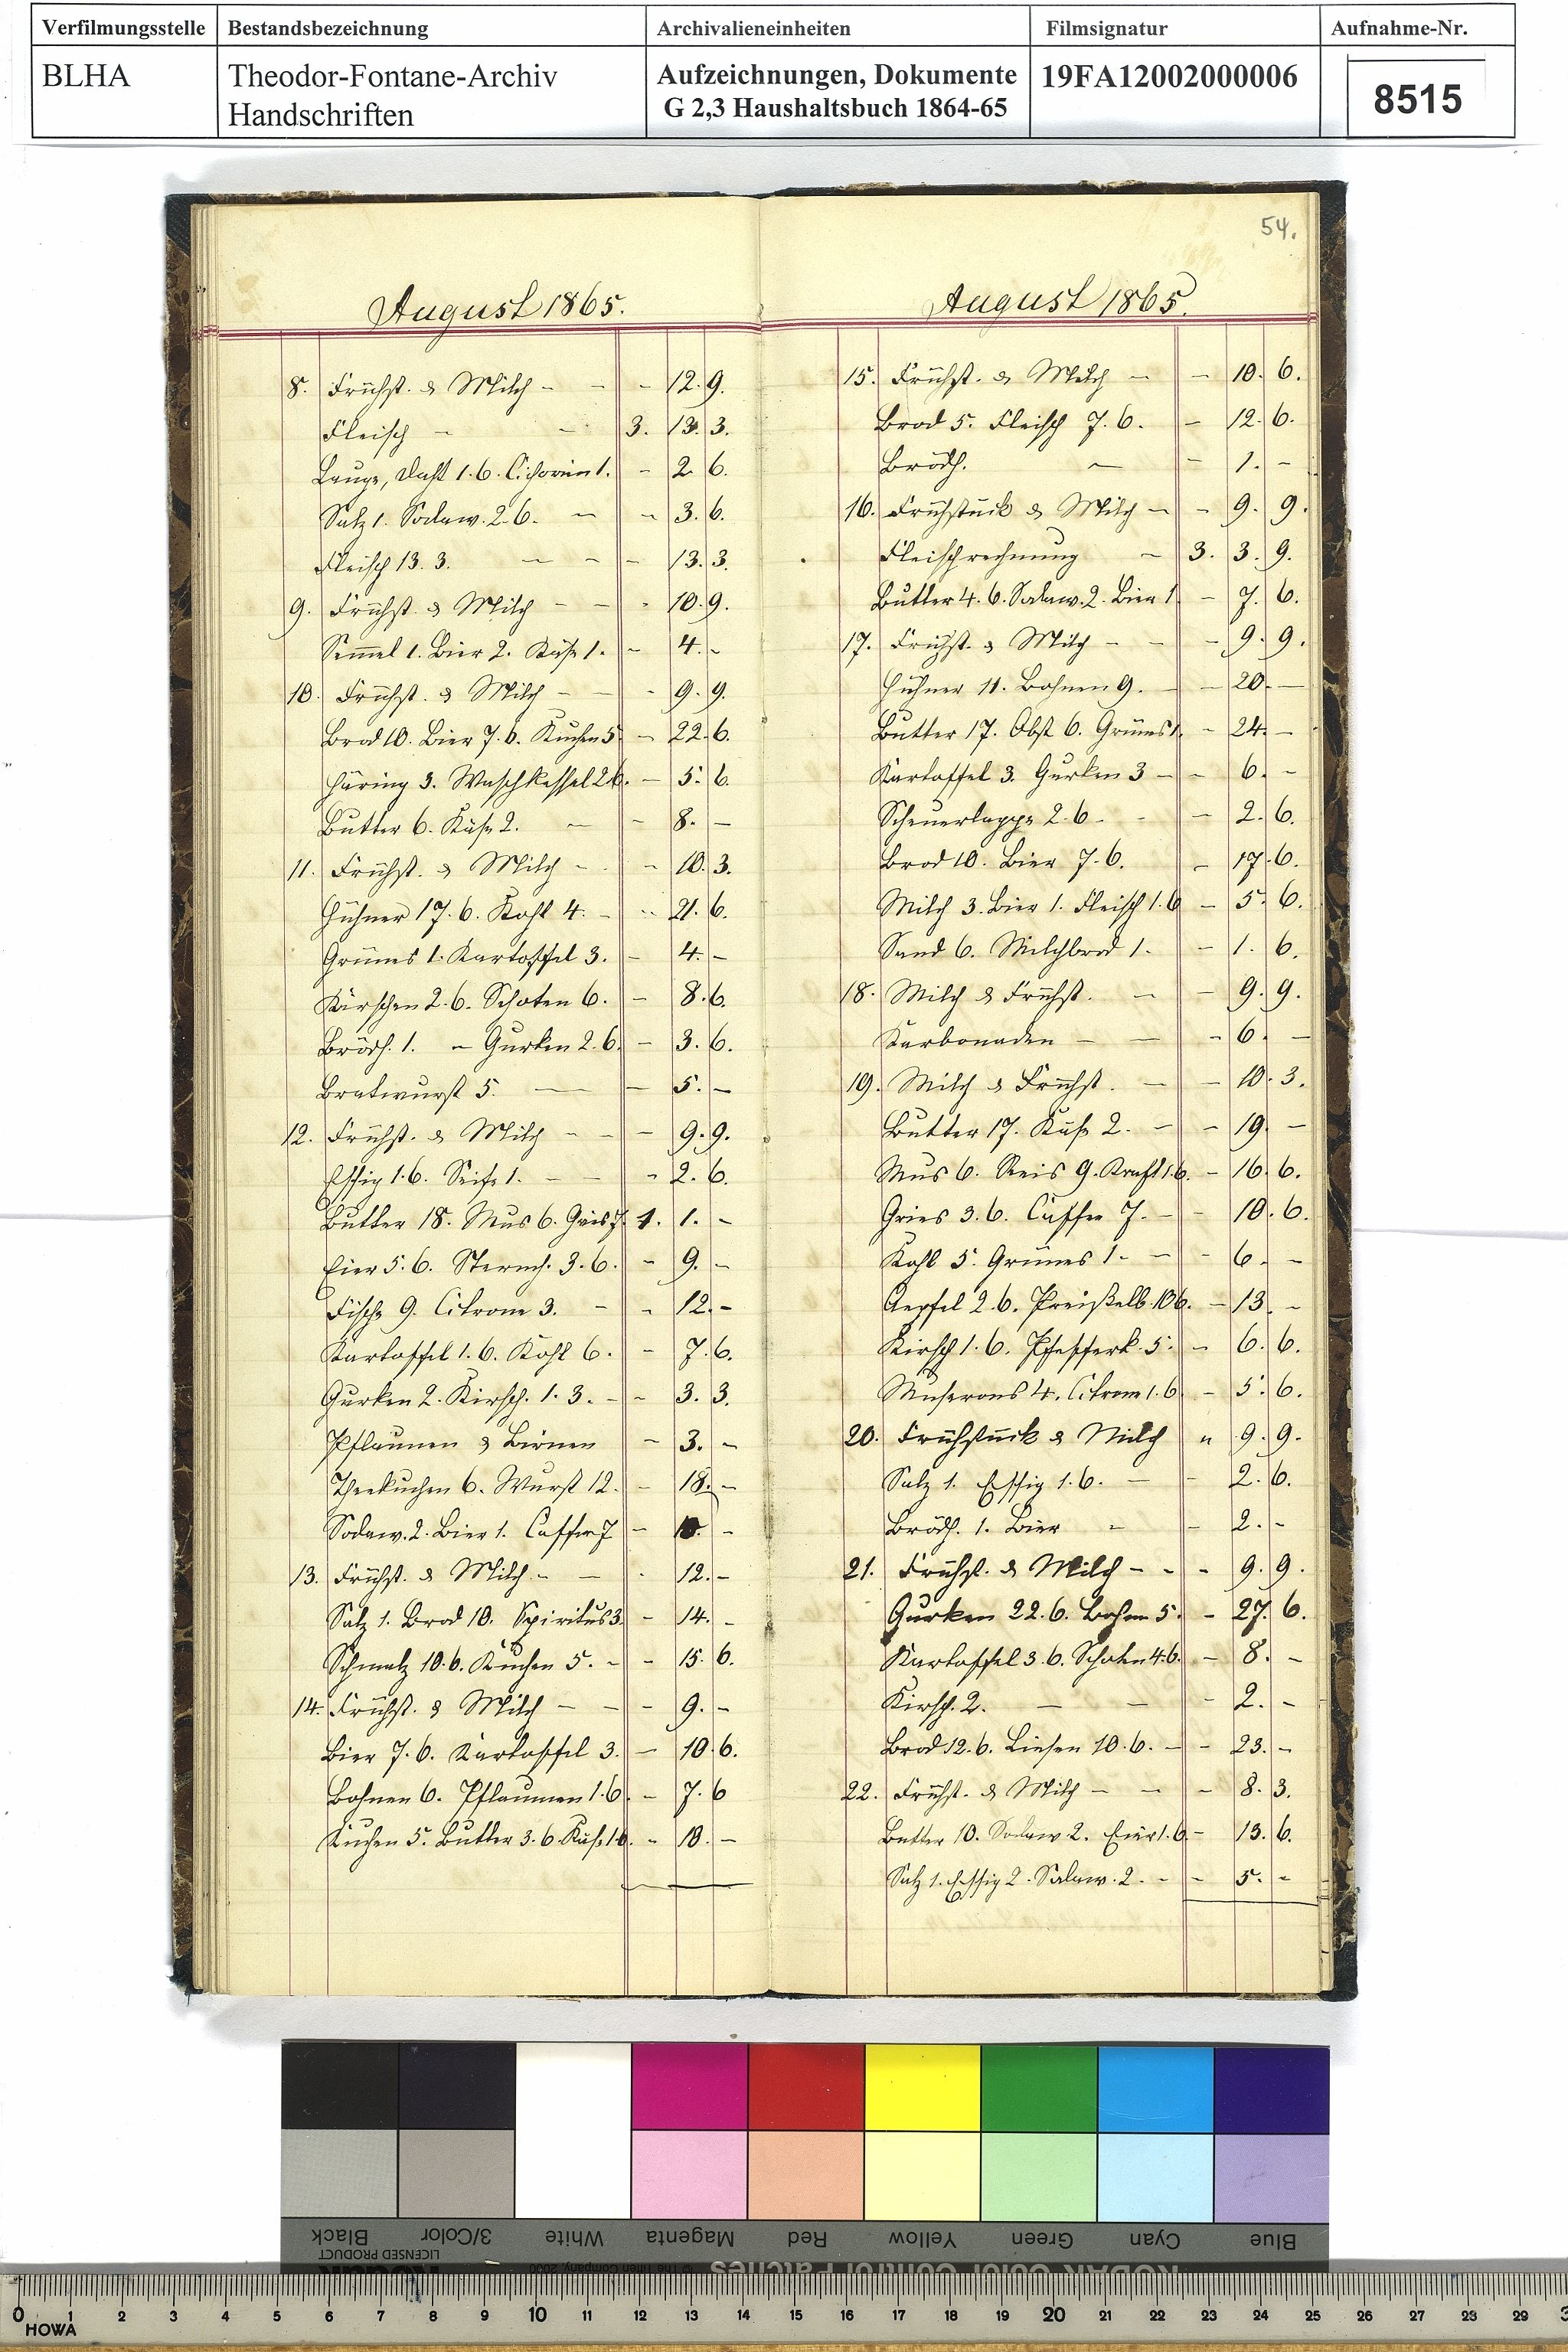 Verfilmungsstelle Bestandsbezeichnung Archivalieneinheiten Filmsignatur Aufnahme-Nr.
BLHA Theodor-Fontane-Archiv Handschriften Aufzeichnungen, Dokumente G 2,3 Haushaltsbuch 1864-65 19FA12002000006 8515
August 1865.
8. Frühst. & Milch - - - 12. 9.
Fleisch - - 3. 13. 3.
Lauge, Docht 1.6. Cichorien 1. - 2. 6.
Salz 1. Sodaw. 2.6. - - 3. 6.
Fleisch 13. 3. - - - 13. 3.
9. Frühst. & Milch - - - 10. 9.
Semmel 1. Bier 2. Käse 1. - 4. -
10. Frühst. & Milch - - - 9. 9.
Brod 10. Bier 7.6. Kuchen 5. - 22. 6.
Häring 3. Waschkessel 2.6. - 5. 6.
Butter 6. Käse 2. - - 8. -
11. Frühst. & Milch - - - 10. 3.
Hühner 17.6. Kohl 4. - - 21. 6.
Grünes 1. Kartoffel 3. - 4. -
Kirschen 2.6. Schoten 6. - 8. 6.
Brödch. 1. - Gurken 2.6. - 3. 6.
Bratwurst 5. - - 5. -
12. Frühst. & Milch - - - 9. 9.
Essig 1.6. Seife 1. - - - 2. 6.
Butter 18. Mus 6. Gries 7. 1. 1. -
Eier 5.6. 3.6. - 9. -
Fische 9. Citrone 3. - - 12. -
Kartoffel 1.6. Kohl 6. - 7. 6.
Gurken 2. Kirsch. 1.3. - - 3. 3.
Pflaumen & Birnen - 3. -
Theekuchen 6. Wurst 12. - 18. -
Sodaw. 2. Bier 1. Caffee 7 - 10. -
13. Frühst. & Milch - - - 12. -
Salz 1. Brod 10. Spiritus 3. - 14. -
Schmalz 10.6. Kuchen 5. - - 15. 6.
14. Frühst. & Milch - - - 9. -
Bier 7.6. Kartoffel 3. - 10. 6.
Bohnen 6. Pflaumen 1.6. - 7. 6
Kuchen 5. Butter 3.6. Käse 1.6. - 10. -
54.
August 1865.
15. Frühst. & Milch - - 10. 6.
Brod 5. Fleisch 7.6. - 12. 6.
Brödch. - - 1. -
16. Frühstück & Milch - - 9. 9.
Fleischrechnung - 3. 3. 9.
Butter 4.6. Sodaw. 2. Bier 1 - 7. 6.
17. Frühst. & Milch - - - 9. 9.
Hühner 11. Bohnen 9. - - 20. -
Butter 17. Obst 6. Grünes 1. - 24. -
Kartoffel 3. Gurken 3 - - 6. -
Scheuerlappe 2.6 - - - 2. 6.
Brod 10. Bier 7.6. - 17. 6.
Milch 3. Bier 1. Fleisch 1.6 - 5. 6.
Sand 6. Milchbrod 1. - 1. 6.
18. Milch & Frühst. - - 9. 9.
Karbonaden - - - 6. -
19. Milch & Frühst. - - 10. 3.
Butter 17. Käse 2. - - 19. -
Mus 6. Reis 9. Kraft 1.6. - 16. 6.
Gries 3.6. Caffee 7. - - 10. 6.
Kohl 5. Grünes 1. - - 6. -
Aepfel 2.6. Preißelb. 10.6. - 13. -
Kirsch 1.6. Pfefferk. 5. - 6. 6.
Muserons 4. Citrone 1.6. - 5. 6.
20. Frühstück & Milch " 9. 9.
Salz 1. Essig 1.6. - - 2. 6.
Brödch. 1. Bier - - 2. -
21. Frühst. & Milch - - - 9. 9.
Gurken 22.6. Bohnen 5. - 27. 6.
Kartoffel 3.6. Schoten 4.6. - 8. -
Kirsch. 2. - - - 2. -
Brod 12.6. Linsen 10.6. - - 23. -
22. Frühst. & Milch - - - 8. 3.
Butter 10. Sodaw 2. Eier 1.6. - 13. 6.
Salz 1. Essig 2. Sodaw. 2. - - 5. -
Black 3/Color White Magenta Red Yellow Green Cyan Blue
LICENSED PRODUCT
Kodak © The Tiffen Company, 2000 KODAK Color Control Patches
0 1 2 3 4 5 6 7 8 9 10 11 12 13 14 15 16 17 18 19 20 21 22 23 24 25 26 27 28 29 3
HOWA